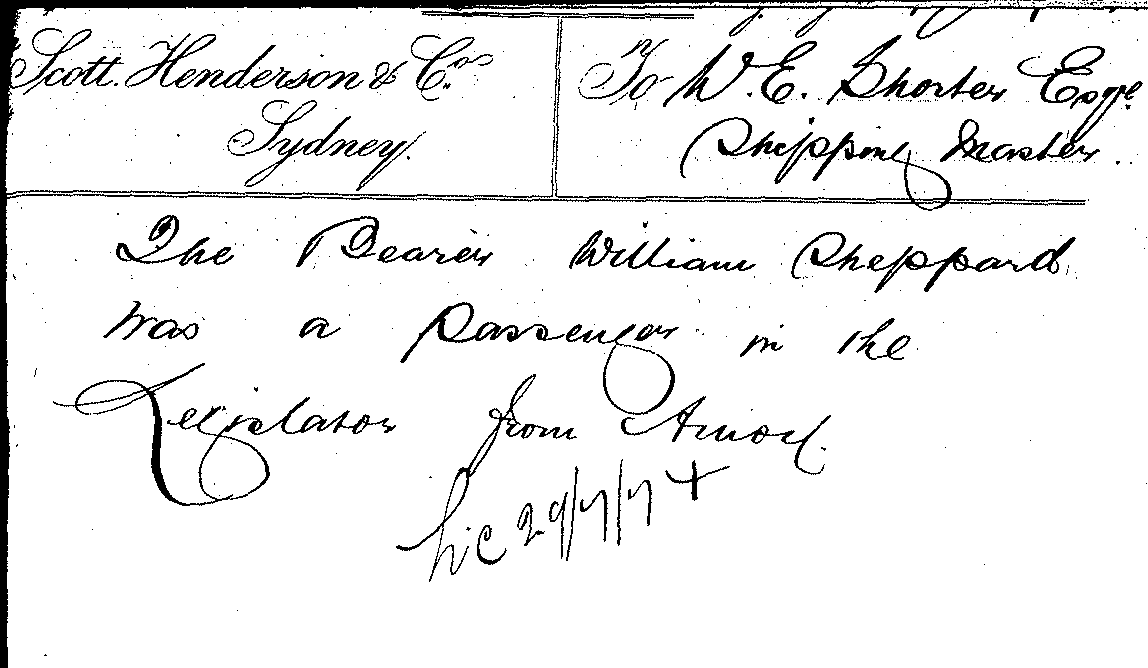 Scott. Henderson & Co's
Sydney.
To W. E. Shorter Esqre.
Shipping Master.
The Bearer William Sheppard
was a passenger in the
Legislator from Amoy.
29/7/74